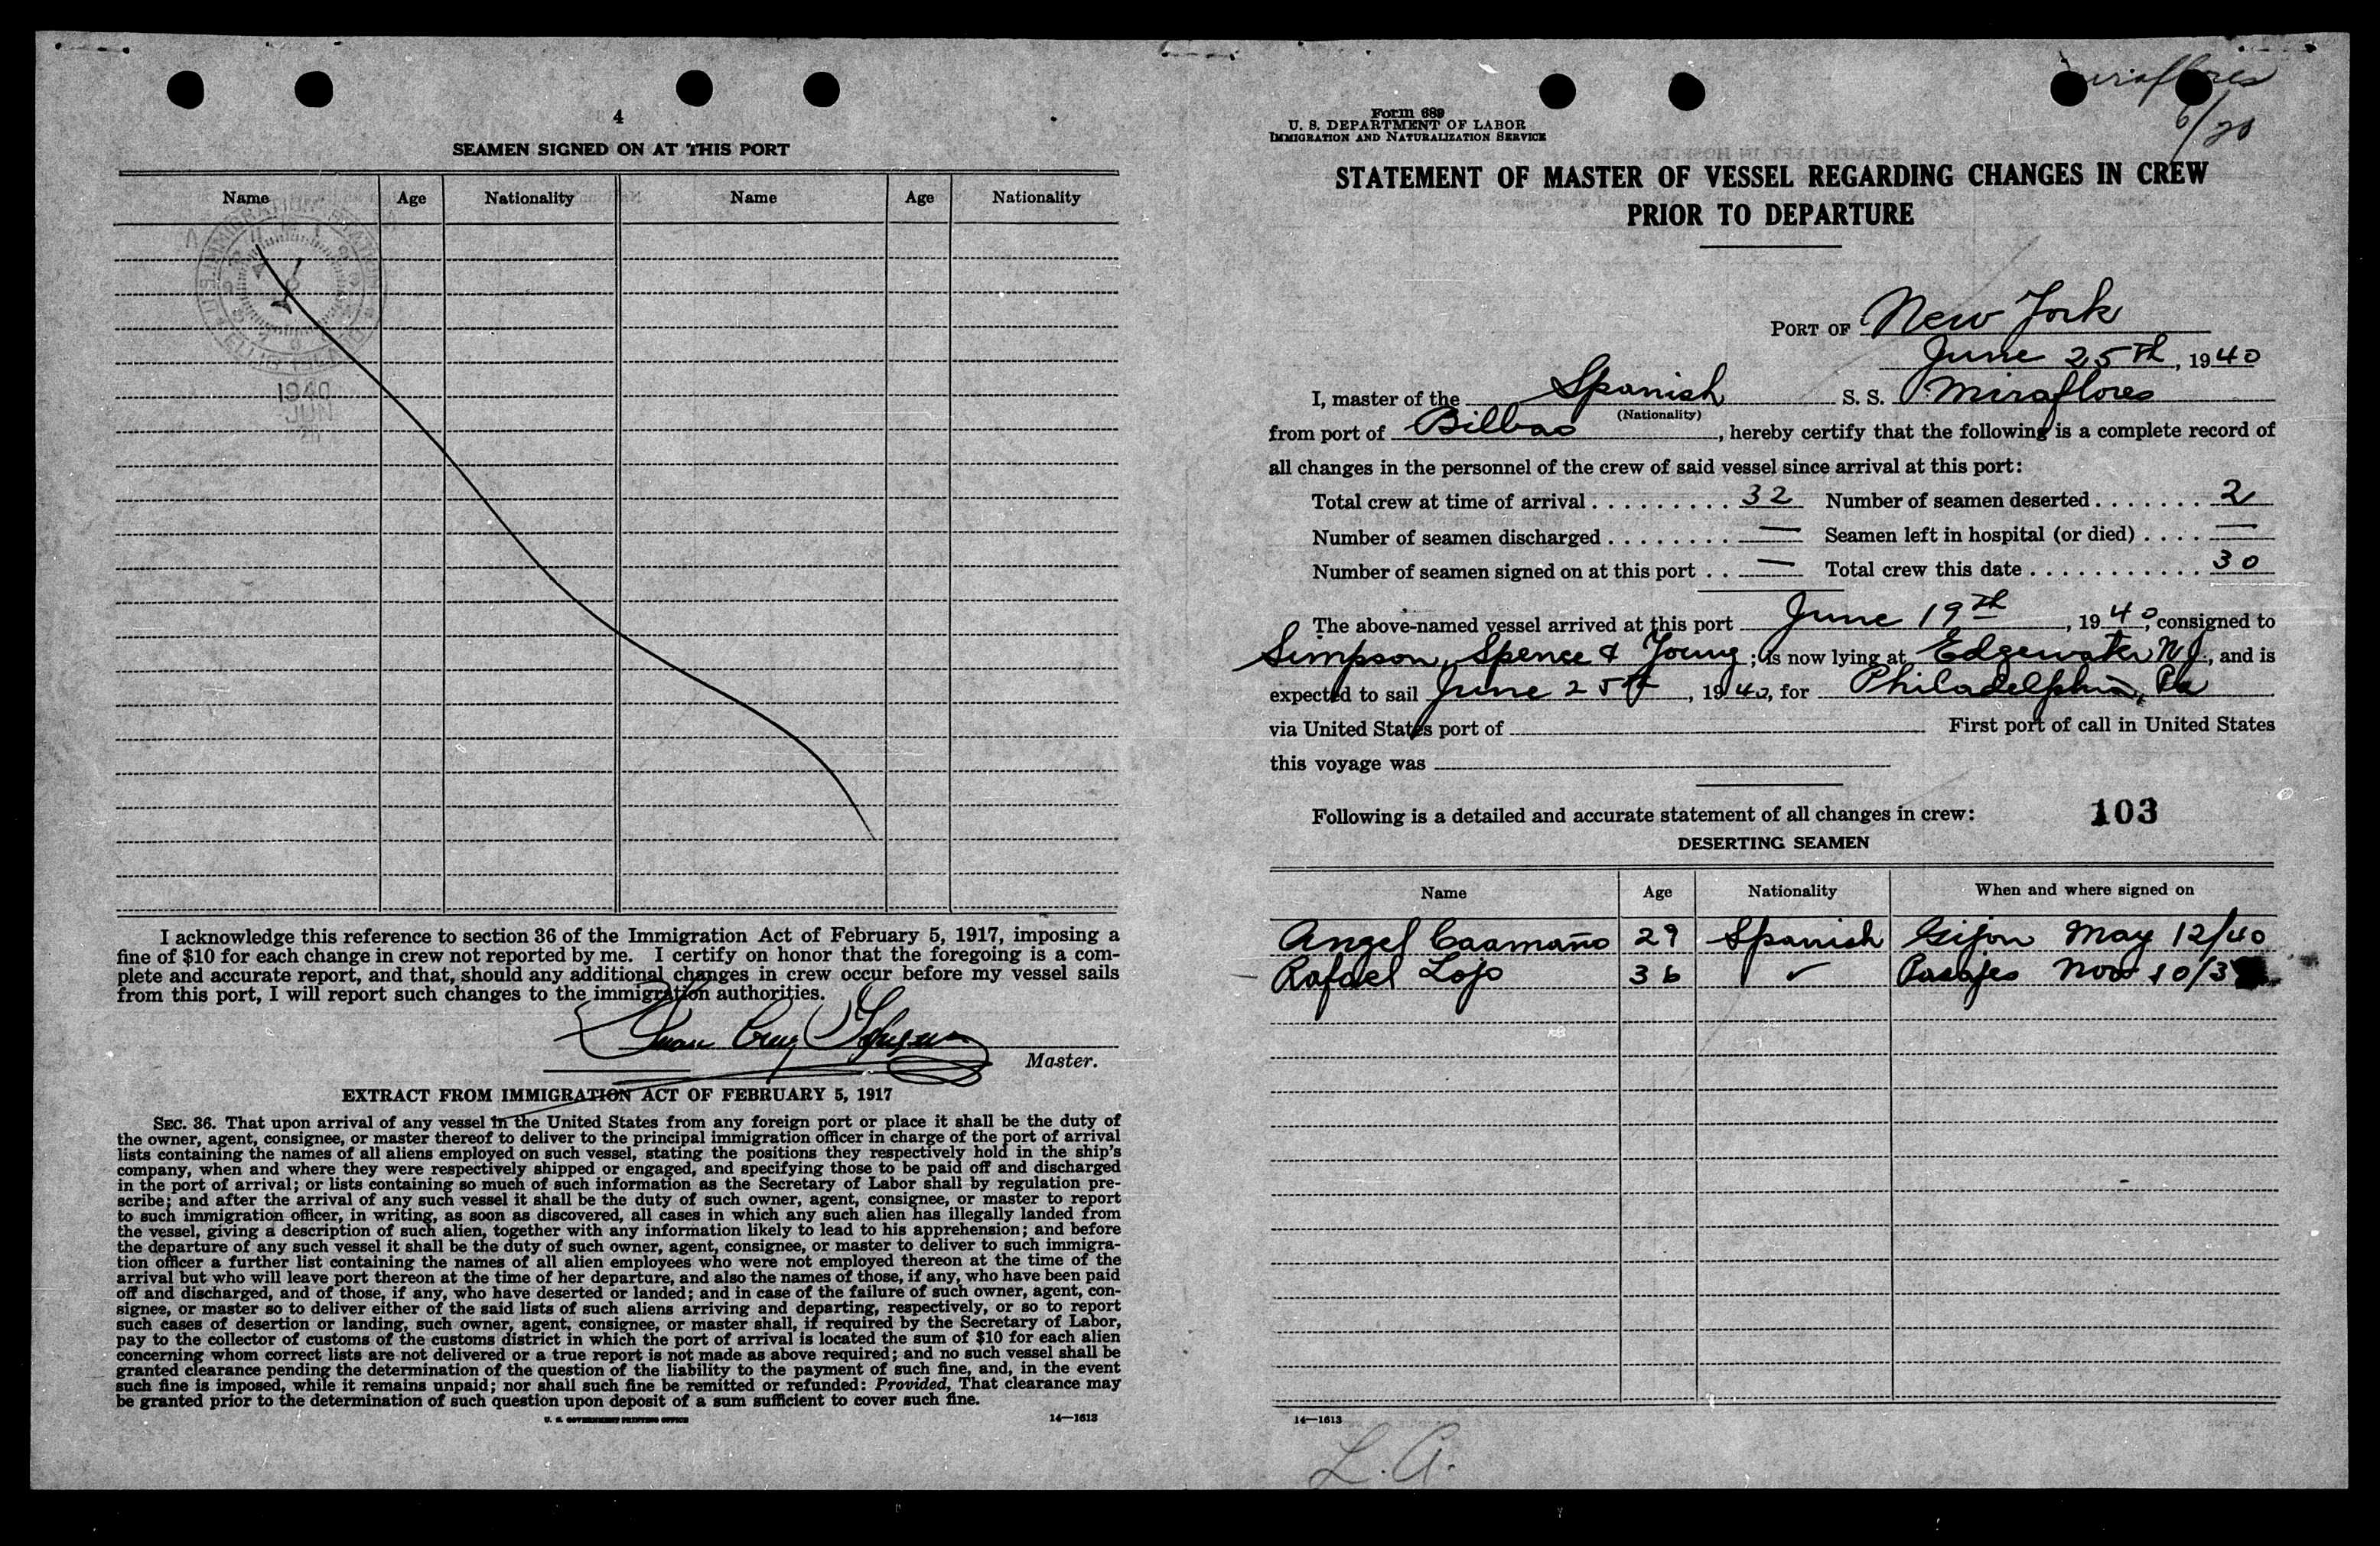 4
SEAMEN SIGNED ON AT THIS PORT
Name Age Nationality Name Age Nationality
1940
JUN
I acknowledge this reference to section 36 of the Immigration Act of February 5, 1917, imposing a
fine of $10 for each change in crew not reported by me. I certify on honor that the foregoing is a com-
plete and accurate report, and that, should any additional changes in crew occur before my vessel sails
from this port, I will report such changes to the immigration authorities.
Juan Cruz
Master.
EXTRACT FROM IMMIGRATION ACT OF FEBRUARY 5, 1917
SEC. 36. That upon arrival of any vessel in the United States from any foreign port or place it shall be the duty of
the owner, agent, consignee, or master thereof to deliver to the principal immigration officer in charge of the port of arrival
lists containing the names of all aliens employed on such vessel, stating the positions they respectively hold in the ship's
company, when and where they were respectively shipped or engaged, and specifying those to be paid off and discharged
in the port of arrival; or lists containing so much of such information as the Secretary of Labor shall by regulation pre-
scribe; and after the arrival of any such vessel it shall be the duty of such owner, agent, consignee, or master to report
to such immigration officer, in writing, as soon as discovered, all cases in which any such alien has illegally landed from
the vessel, giving a description of such alien, together with any information likely to lead to his apprehension; and before
the departure of any such vessel it shall be the duty of such owner, agent, consignee, or master to deliver to such immigra-
tion officer a further list containing the names of all alien employees who were not employed thereon at the time of the
arrival but who will leave port thereon at the time of her departure, and also the names of those, if any, who have been paid
off and discharged, and of those, if any, who have deserted or landed; and in case of the failure of such owner, agent, con-
signee, or master so to deliver either of the said lists of such aliens arriving and departing, respectively, or so to report
such cases of desertion or landing, such owner, agent, consignee, or master shall, if required by the Secretary of Labor,
pay to the collector of customs of the customs district in which the port of arrival is located the sum of $10 for each alien
concerning whom correct lists are not delivered or a true report is not made as above required; and no such vessel shall be
granted clearance pending the determination of the question of the liability to the payment of such fine, and, in the event
such fine is imposed, while it remains unpaid; nor shall such fine be remitted or refunded: Provided, That clearance may
be granted prior to the determination of such question upon deposit of a sum sufficient to cover such fine.
U. S. GOVERNMENT PRINTING OFFICE 14—1613
6/20
Form 689
U. S. DEPARTMENT OF LABOR
IMMIGRATION AND NATURALIZATION SERVICE
STATEMENT OF MASTER OF VESSEL REGARDING CHANGES IN CREW
PRIOR TO DEPARTURE
PORT OF New York
June 25th, 1940
I, master of the Spanish S. S. Miraflores
(Nationality)
from port of Bilbao, hereby certify that the following is a complete record of
all changes in the personnel of the crew of said vessel since arrival at this port:
Total crew at time of arrival . . . . . . . . . 32 Number of seamen deserted . . . . . . . 2
Number of seamen discharged . . . . . . . . — Seamen left in hospital (or died) . . . . —
Number of seamen signed on at this port . . — Total crew this date . . . . . . . . . . . 30
The above-named vessel arrived at this port June 19th, 1940, consigned to
Simpson, Spence & Young; is now lying at Edgewater NJ, and is
expected to sail June 25th, 1940, for Philadelphia, Pa
via United States port of First port of call in United States
this voyage was
Following is a detailed and accurate statement of all changes in crew: 103
DESERTING SEAMEN
Name Age Nationality When and where signed on
Angel Caamaño 29 Spanish Gijon May 12/40
Rafael Lojo 36 ✓ Pasajes Nov 10/3
14—1613
L. A.